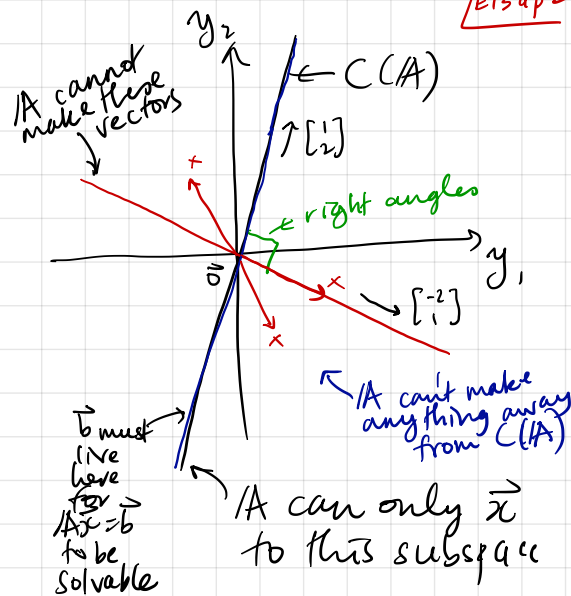 y₂
C(A)
A cannot
make these
vectors
[1 2]
right angles
0⃗
y₁
[-2 1]
x
x
x
x
A can't make
anything away
from C(A)
b⃗ must
live
here
for
Ax⃗=b⃗
to be
solvable
A can only x⃗
to this subspace